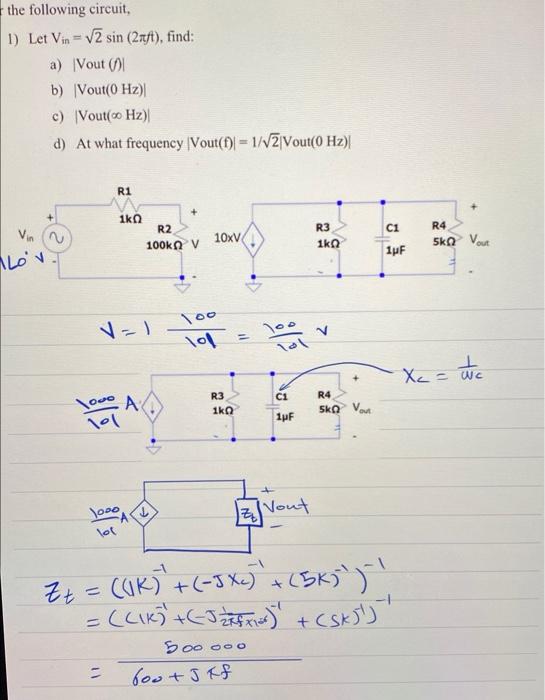 the following circuit,
1) Let Vin = √2 sin (2πft), find:
a) |Vout (f)|
b) |Vout(0 Hz)|
c) |Vout(∞ Hz)|
d) At what frequency |Vout(f)| = 1/√2|Vout(0 Hz)|
R1
1kΩ
+ Vin
1∠0° V -
R2
100kΩ
+ V
10xV
R3
1kΩ
C1
1µF
R4
5kΩ
+ Vout -
V = 1 100/101 = 100/101 V
Xc = 1/ωc
1000/101 A
R3
1kΩ
C1
1µF
R4
5kΩ
+ Vout -
1000/101 A
Zt
+ Vout -
Zt = ((1K)⁻¹ + (-JXc)⁻¹ + (5K)⁻¹)⁻¹
= ((1K)⁻¹ + (-J 1/2πf×10⁻⁶)⁻¹ + (5K)⁻¹)⁻¹
= 500 000 / 600 + Jπf